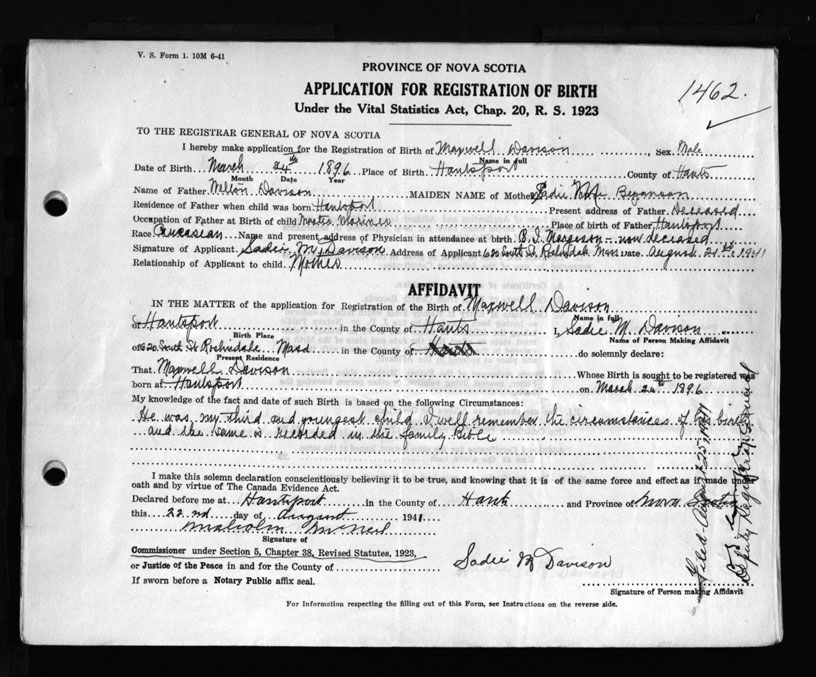 V. S. Form 1. 10M 6-41
PROVINCE OF NOVA SCOTIA
APPLICATION FOR REGISTRATION OF BIRTH
1462.
Under the Vital Statistics Act, Chap. 20, R. S. 1923
TO THE REGISTRAR GENERAL OF NOVA SCOTIA
I hereby make application for the Registration of Birth of Maxwell Davison Sex Male
Name in full
Date of Birth March 24th 1896 Place of Birth Hantsport County of Hants
Month Date Year
Name of Father Davison MAIDEN NAME of Mother Sadie
Residence of Father when child was born Hantsport Present address of Father Deceased
Occupation of Father at Birth of child Master Mariner Place of birth of Father Hantsport
Race Caucasian Name and present address of Physician in attendance at birth. now deceased
Signature of Applicant. Sadie M. Davison Address of Applicant 620 South St Roslindale Mass Date August 21st, 1941
Relationship of Applicant to child. Mother
AFFIDAVIT
IN THE MATTER of the application for Registration of the Birth of Maxwell Davison
Name in full
of Hantsport in the County of Hants I, Sadie M. Davison
Birth Place Name of Person Making Affidavit
of 620 South St Roslindale Mass in the County of Hants do solemnly declare:
Present Residence
That Maxwell Davison Whose Birth is sought to be registered was
born at Hantsport on March 24th 1896
My knowledge of the fact and date of such Birth is based on the following Circumstances:
He was my third and youngest child. I well remember the circumstances of his birth
and the same is recorded in the family Bible
I make this solemn declaration conscientiously believing it to be true, and knowing that it is of the same force and effect as if made under
oath and by virtue of The Canada Evidence Act.
Declared before me at Hantsport in the County of Hants and Province of Nova Scotia
this 22nd day of August 1941
Malcolm
Signature of
Commissioner under Section 5, Chapter 38, Revised Statutes, 1923,
or Justice of the Peace in and for the County of Sadie M Davison
If sworn before a Notary Public affix seal.
Signature of Person making Affidavit
For Information respecting the filling out of this Form, see Instructions on the reverse side.
Filed August 25 1941
Deputy Registrar General